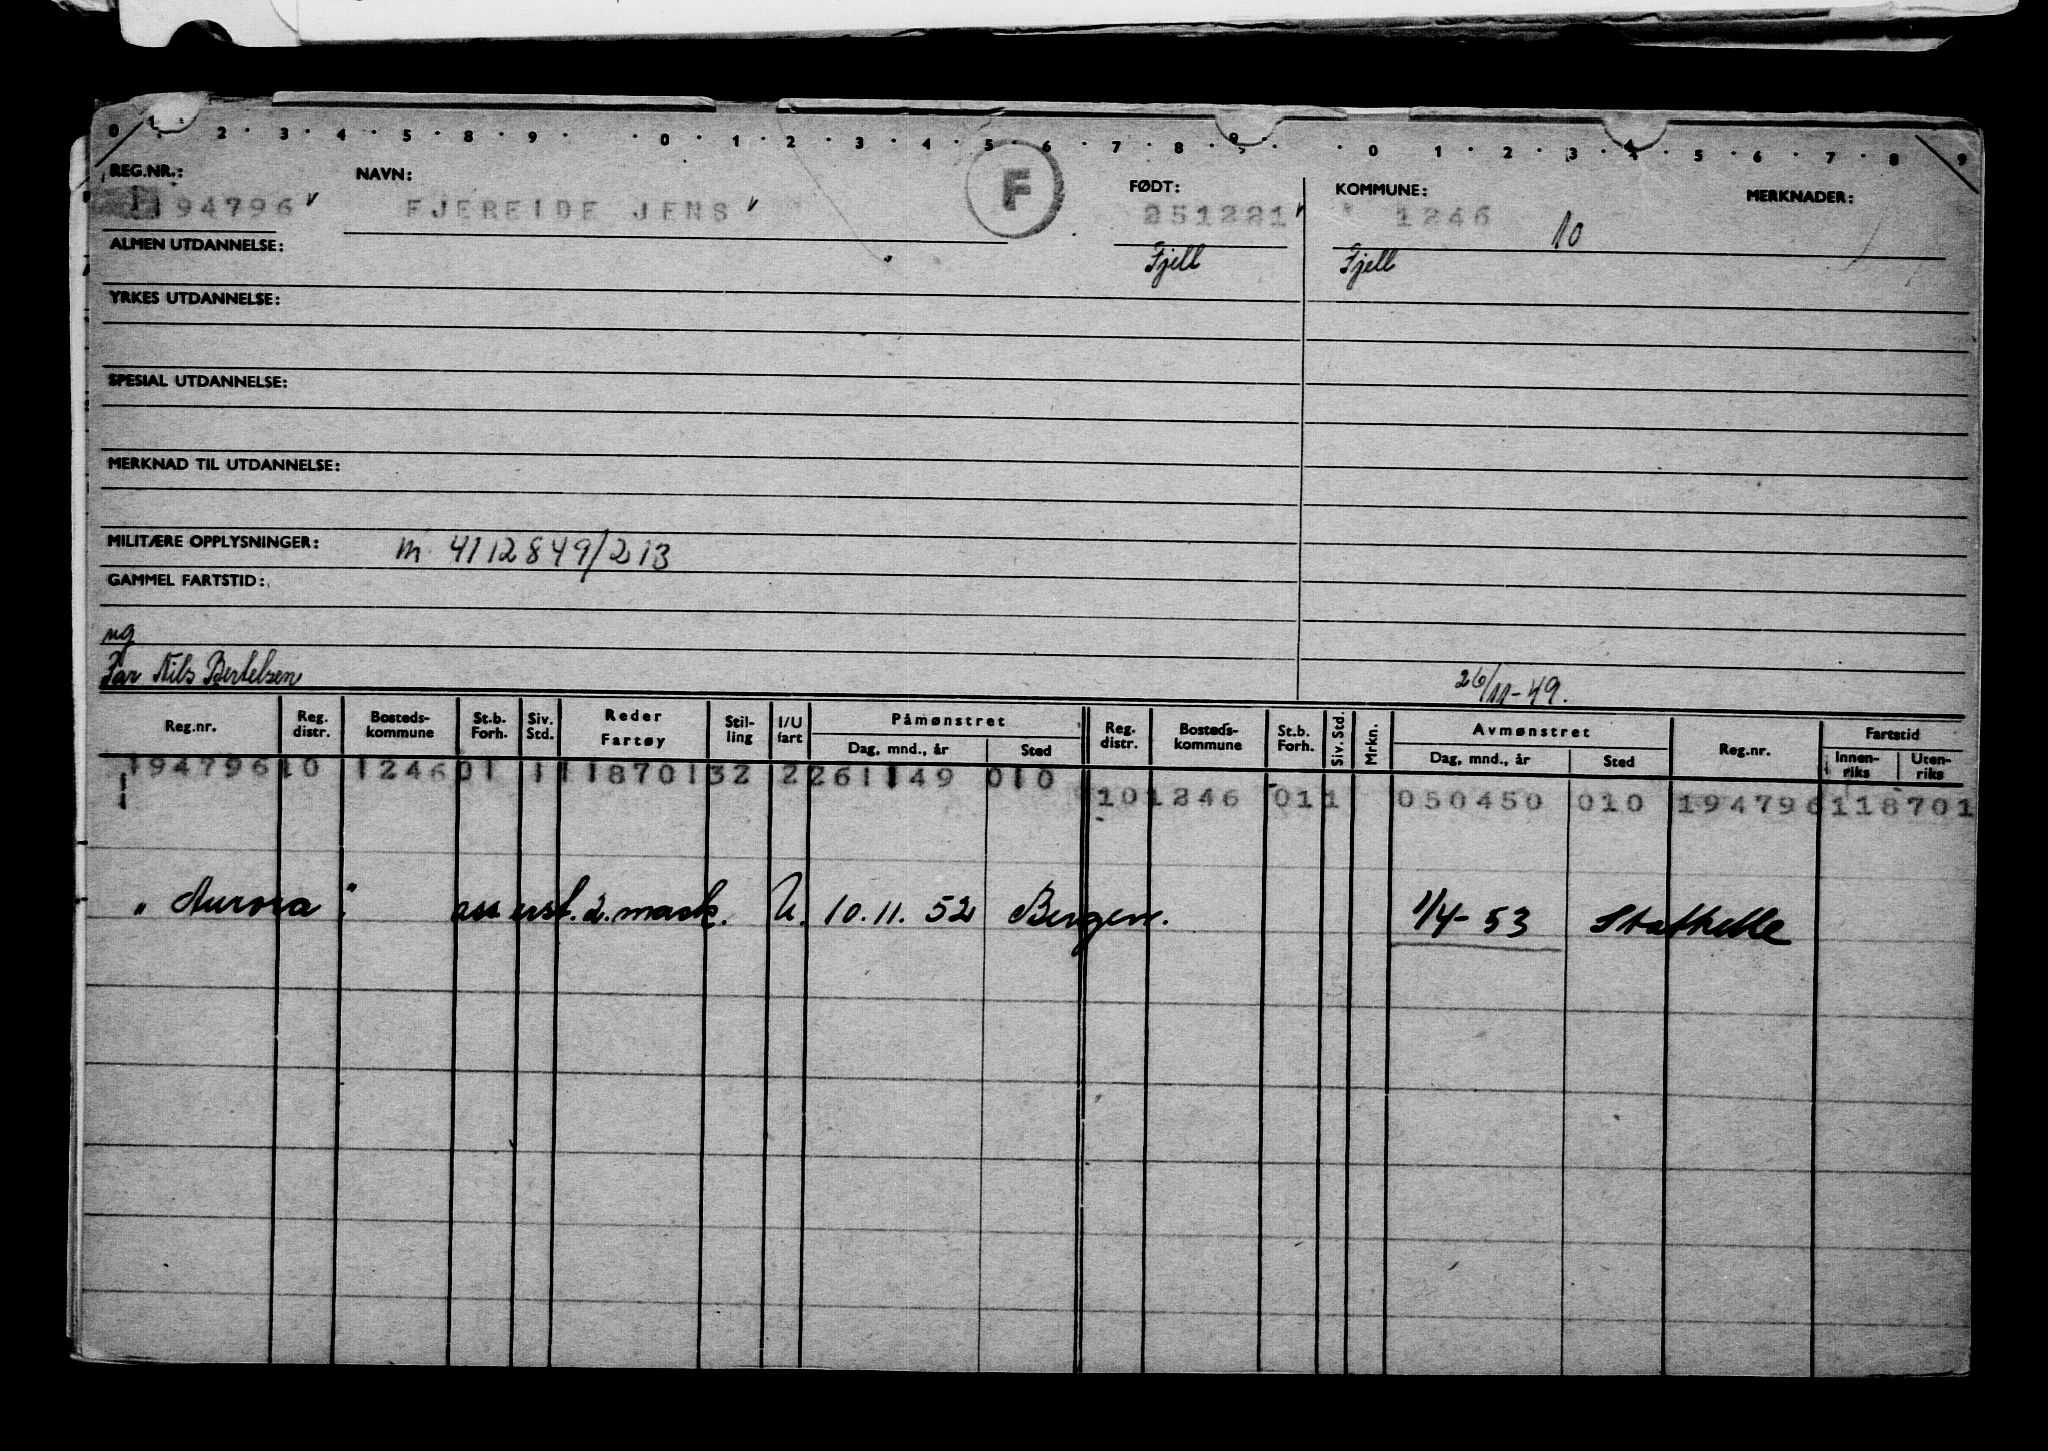 0 1 2 3 4 5 8 9 0 1 2 3 4 5 6 7 8 9 0 1 2 3 4 5 6 7 8 9
REG.NR.: NAVN: F FØDT: KOMMUNE: MERKNADER:
194796 FJEREIDE JENS 251221 1246 10
ALMEN UTDANNELSE: Fjell Fjell
YRKES UTDANNELSE:
SPESIAL UTDANNELSE:
MERKNAD TIL UTDANNELSE:
MILITÆRE OPPLYSNINGER: m 4112849/213
GAMMEL FARTSTID:
ug
Far Nils Bertelsen 26/11-49.
Reg.nr. Reg. distr. Bosteds-kommune St.b. Forh. Siv. Std. Reder Fartøy Stil-ling I/U fart Påmønstret Dag, mnd., år Sted Reg. distr. Bosteds-kommune St.b. Forh. Siv. Std. Mrkn. Avmønstret Dag, mnd., år Sted Reg.nr. Fartstid Innen-riks Uten-riks
194796 10 1246 01 1 118701 32 2 261149 010
10 1246 01 1 050450 010 194796 118701
"Aurora". ass ust. 2. mask. U. 10.11.52 Bergen. 1/4-53 Stathelle